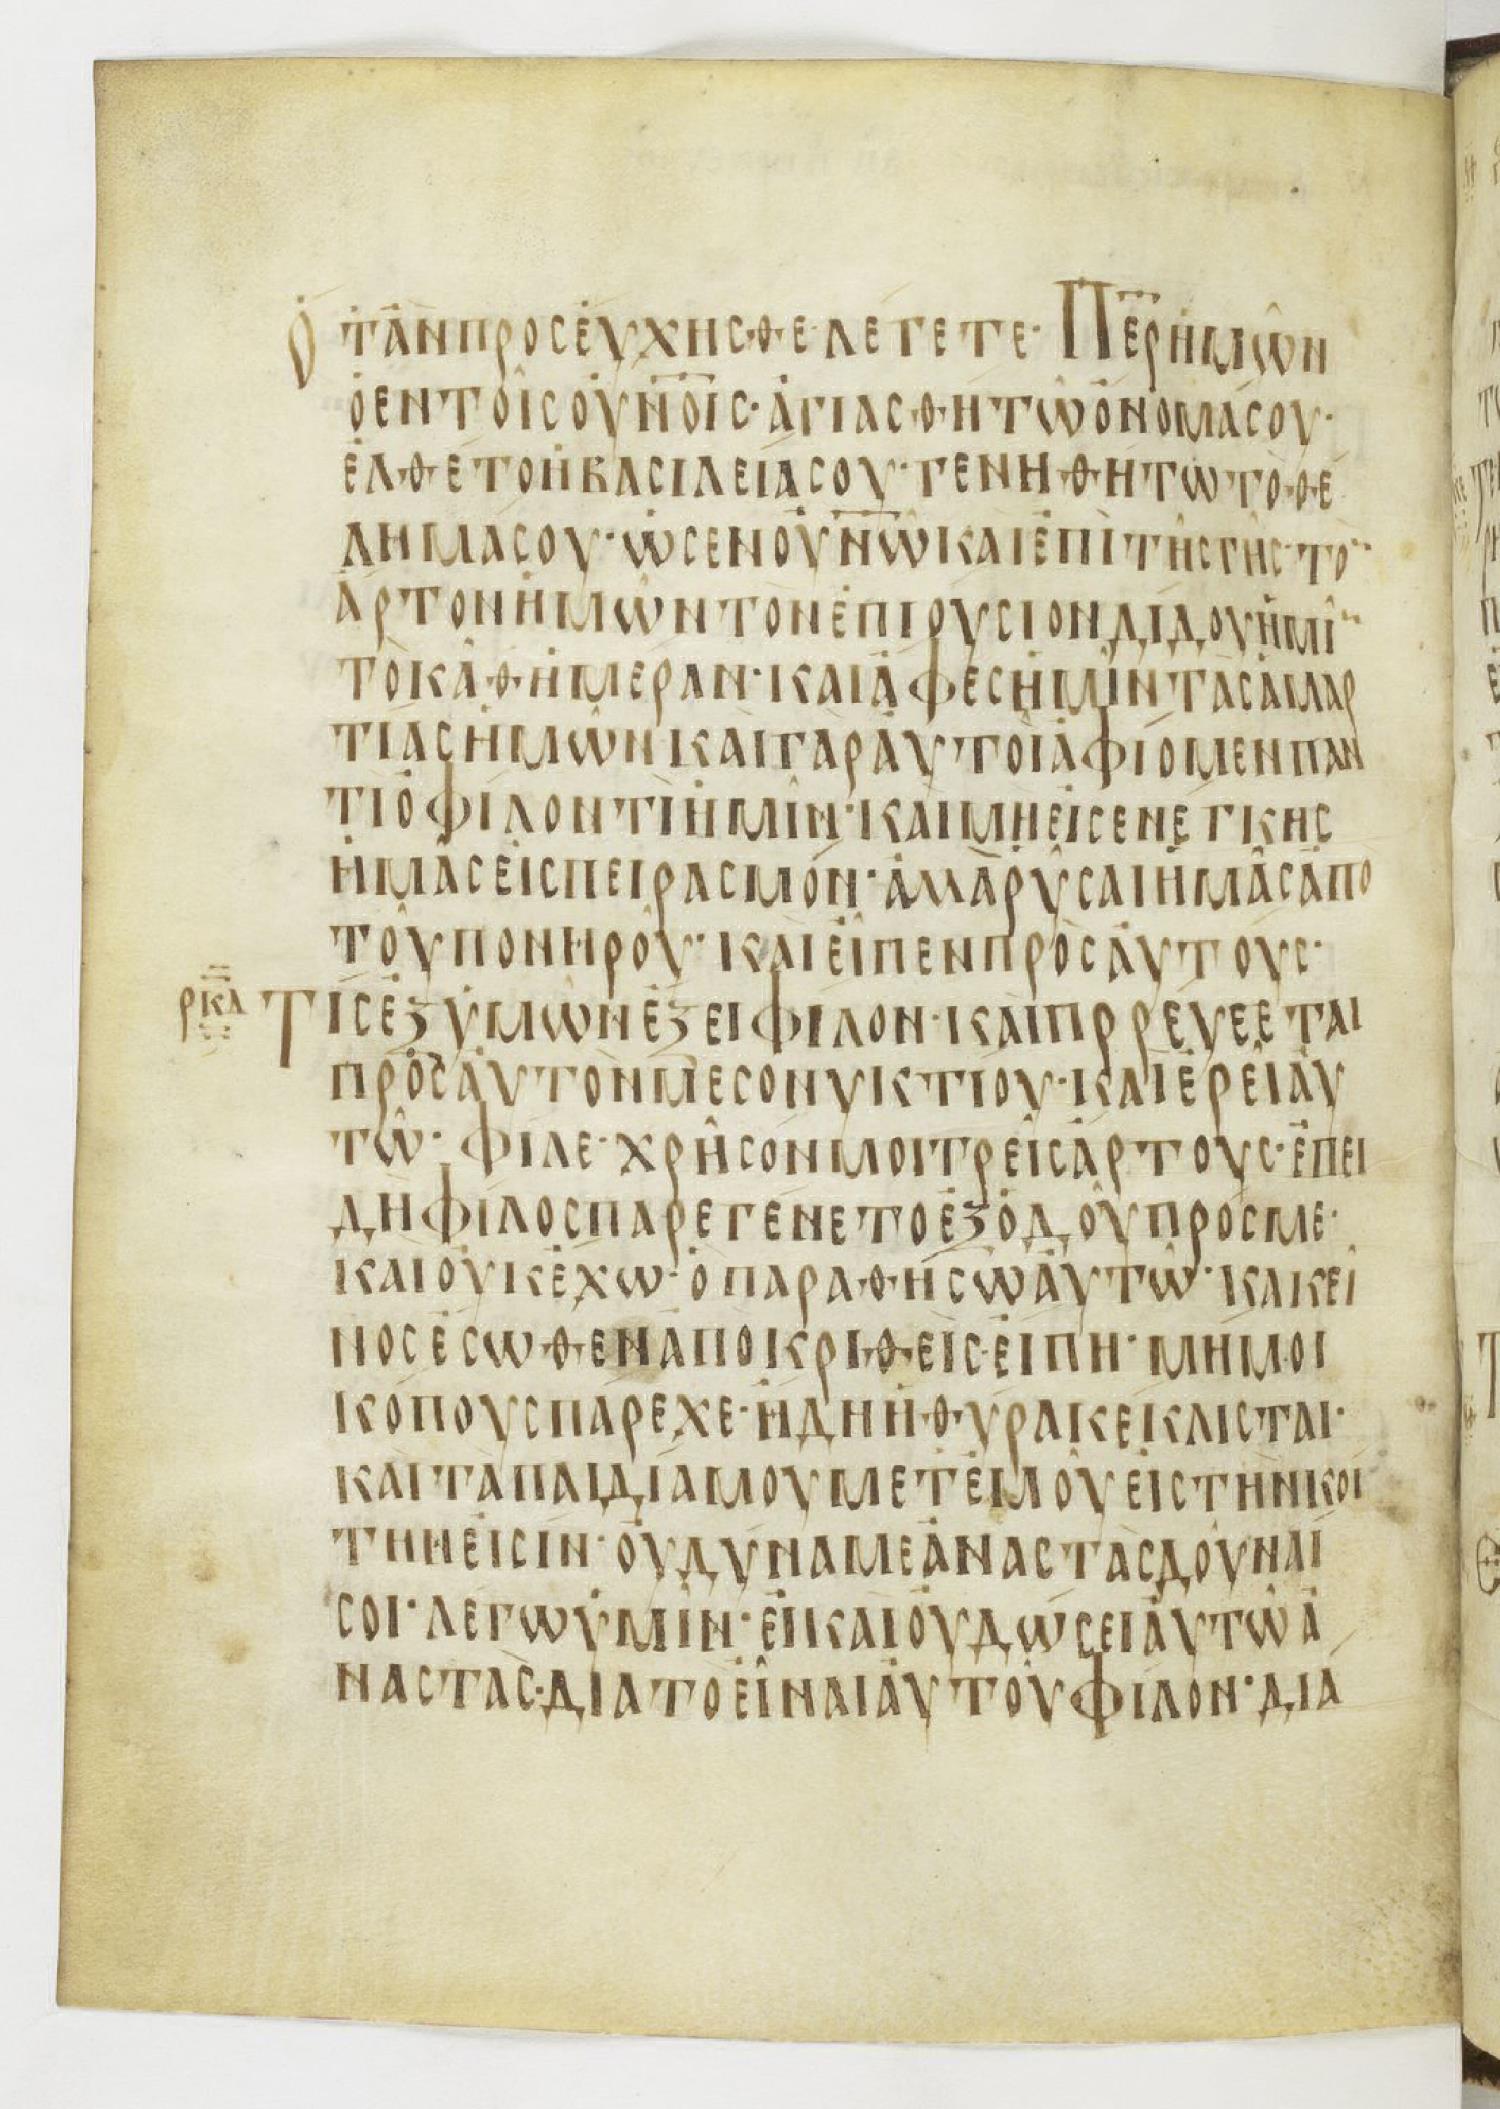 Ὁτὰν προσεύχησθε λεγετε· Π̅ε̅ρ ἡμῶν
ὁ εν τοῖς οὐν̅ο̅ι̅ς· ἁγιασθητω ὄνομα σου·
ἐλθετο ἡ βασιλεια σου· γενηθητω τὸ θε
λημα σου· ὡς εν οὐν̅ω̅ και ἐπι τῆς γῆς· το
ἀρτον ἡμῶν τον ἐπιουσιον διδου ἡμῖ
τὸ καθ ἡμεραν· και ἄφες ἡμῖν τὰς ἁμαρ
τιας ἡμῶν και γαρ ἀυτοὶ ἀφιομεν παν
τι ὀφιλοντι ἡμῖν· και μη εἰσενεγκης
ἡμᾶς εἰς πειρασμόν· ἀλλὰ ῥῦσαι ἡμᾶς ἀπο
τοῦ πονηροῦ· και εἶπεν πρὸς ἀυτους·
ρκδ Τις ἐξ ὑμῶν ἕξει φιλον· και πρρευεεται
πρὸς ἀυτον μεσονυκτιου· και ἐρεῖ ἀυ
τῶ· φιλε· χρῆσον μοι τρεῖς ἀρτους· ἐπει
δη φιλος παρεγενετο ἐξ ὁδοῦ προς με·
και οὐκ ἐχω· ὁ παραθησω ἀυτῶ· κακεῖ
νος ἐσωθεν ἀποικριθεὶς εἰπη· μη μοι
κοπους παρεχε· ἠδη ἡ θυρα κεκλισται·
και τα παιδια μου μετ ἐμοῦ εἰς τὴν κοι
την εἰσιν· οὐ δυναμε ἀναστας δουναι
σοι· λεγω ὑμῖν· εἰ και οὐ δωσει ἀυτῶ ἀ
ναστας· δια το εἶναι ἀυτοῦ φιλον· δια